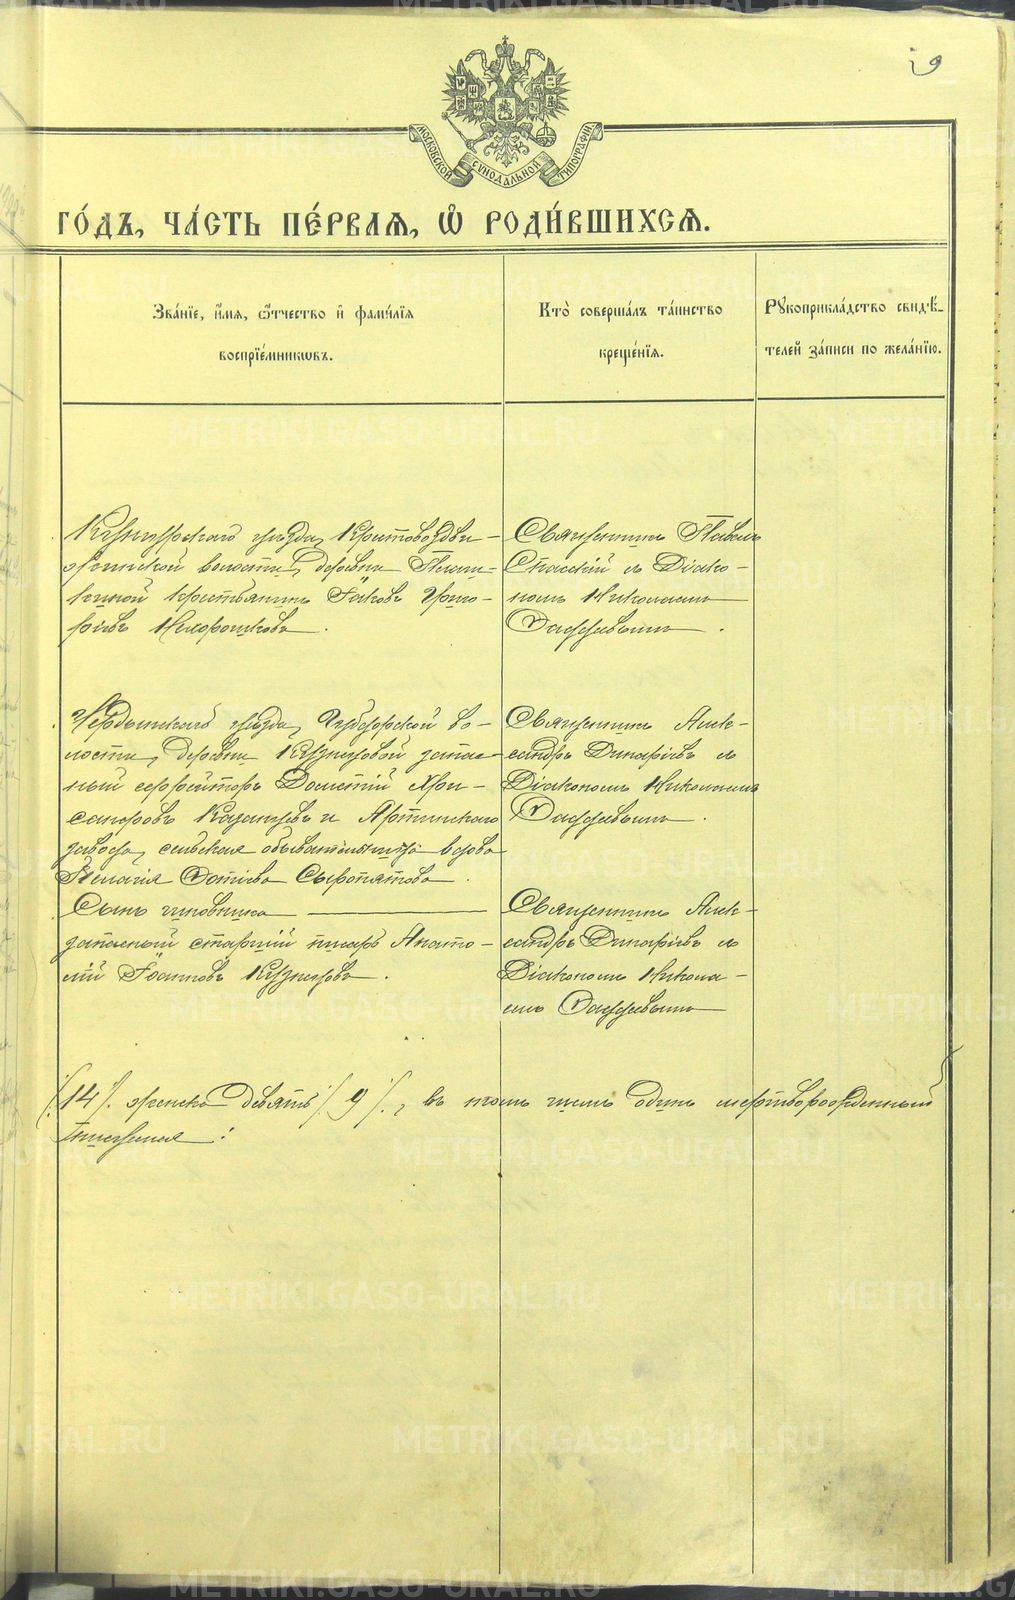 9
МОСКОВСКОЙ СѴНОДАЛЬНОЙ ТИПОГРАФІИ
ГО́ДЪ, ЧА́СТЬ ПЕ́РВАѦ, Ѽ РОДИ́ВШИХСѦ.
Зва́нїе, и҆́мѧ, ѻ҆́тчество и҆ фами́лїѧ
воспрїе́мникѡвъ.
Кто̀ соверша́лъ та́инство
креще́нїѧ.
Рꙋкоприкла́дство свидѣ́-
телей за́писи по жела́нїю.
Кунгурскаго уѣзда, Крестовоздви-
женской волости, деревни
крестьянинъ Іаковъ Григо-
рьевъ
Священникъ Павелъ
Спасскій съ Діако-
номъ Николаемъ
Чердынскаго уѣзда, Губдорской во-
лости, деревни Кузнецовой запас-
ный ефрейторъ Дометій Хри-
санфовъ Казанцевъ и Артинскаго
завода, сельская обывательница вдова
Пелагія Фотіева Сыропятова.
Священникъ Алек-
сандръ Динаріевъ съ
Діакономъ Николаемъ
Сынъ чиновника
запасный старшій писарь Анато-
лій Іоанновъ Кузнецовъ.
Священникъ Алек-
сандръ Динаріевъ съ
Діакономъ Никола-
емъ
/14/. женска девять /9/., въ томъ числѣ одинъ мертворожденный